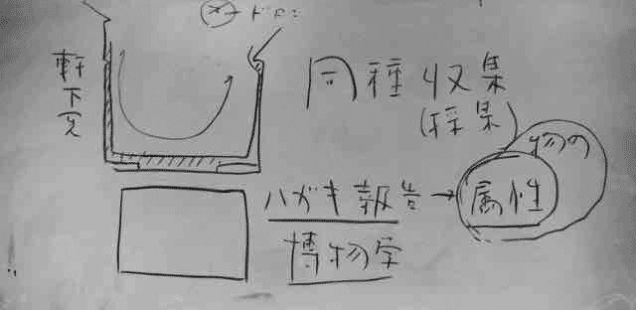 軒下
同種収集
(採集)
物の
属性
ハガキ報告→
博物学